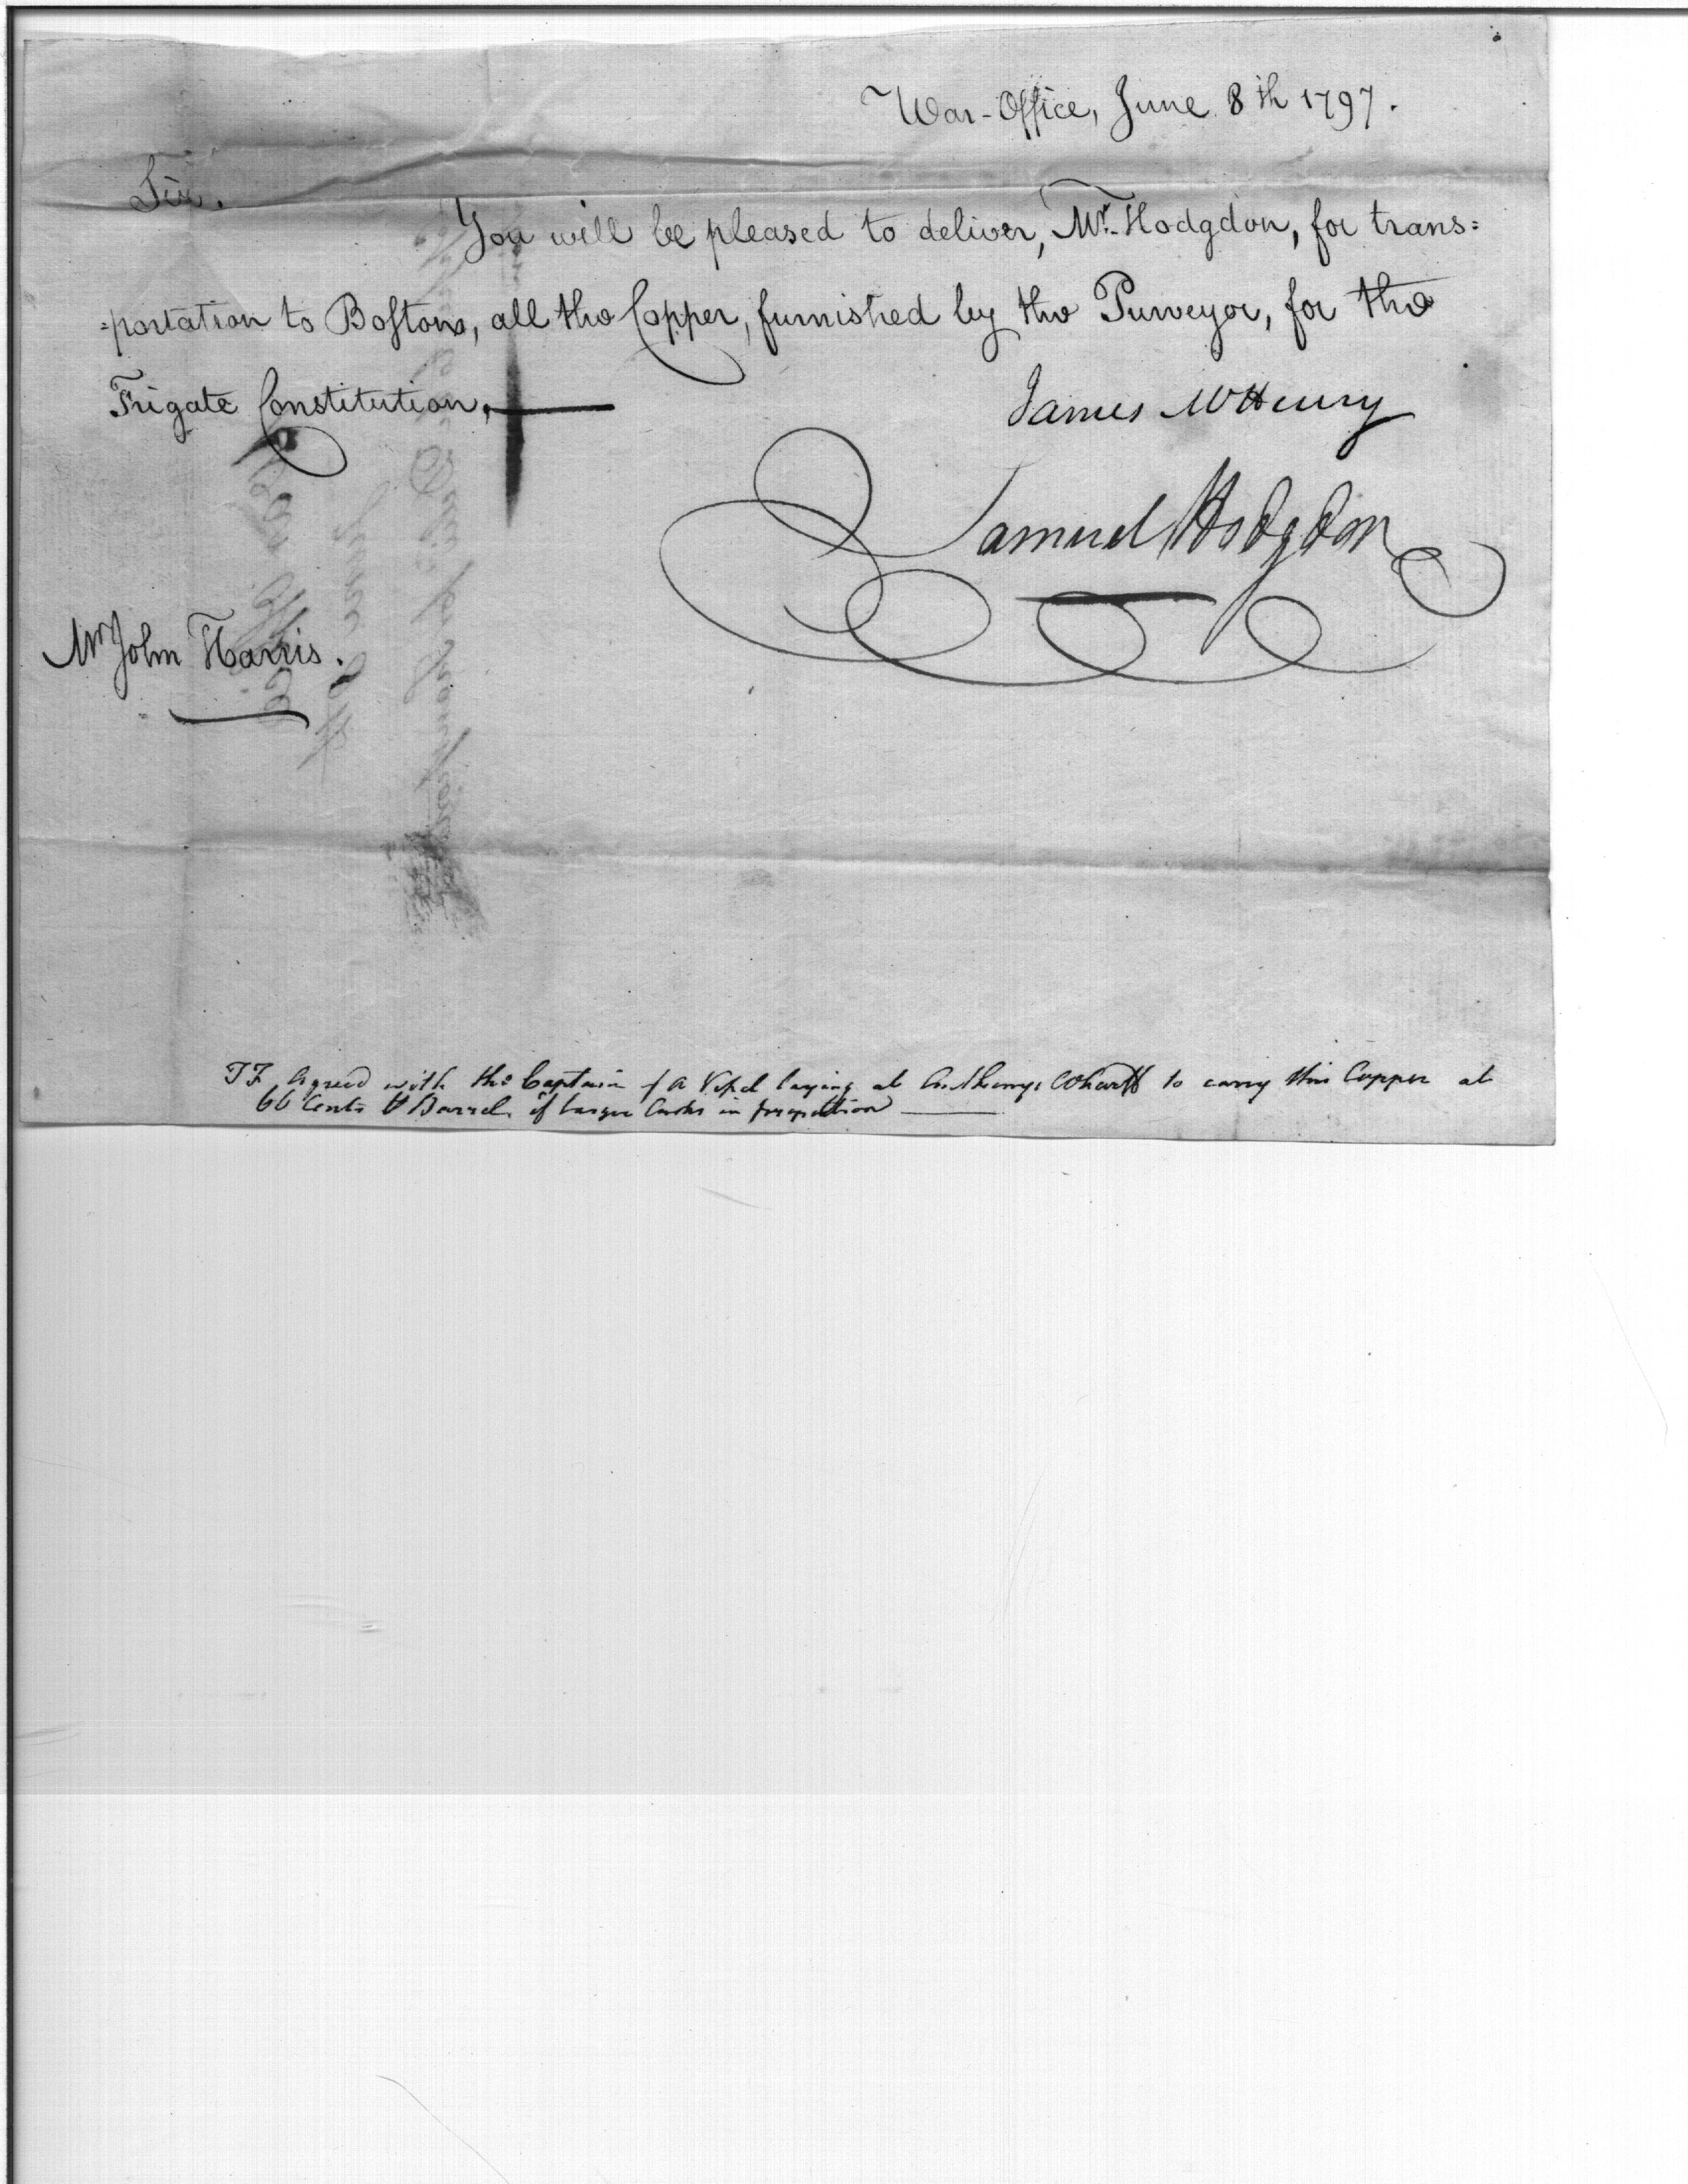 War-Office, June 8th 1797.
Sir.
You will be pleased to deliver, Mr. Hodgdon, for trans=
=portation to Boston, all the Copper, furnished by the Purveyor, for the
Frigate Constitution.
James McHenry
Samuel Hodgdon
Mr John Harris.
Agreed with the Captain of a Vessel laying at Anthonys Wharff to carry this Copper at
66 Cents Barrel if larger Casks in proportion